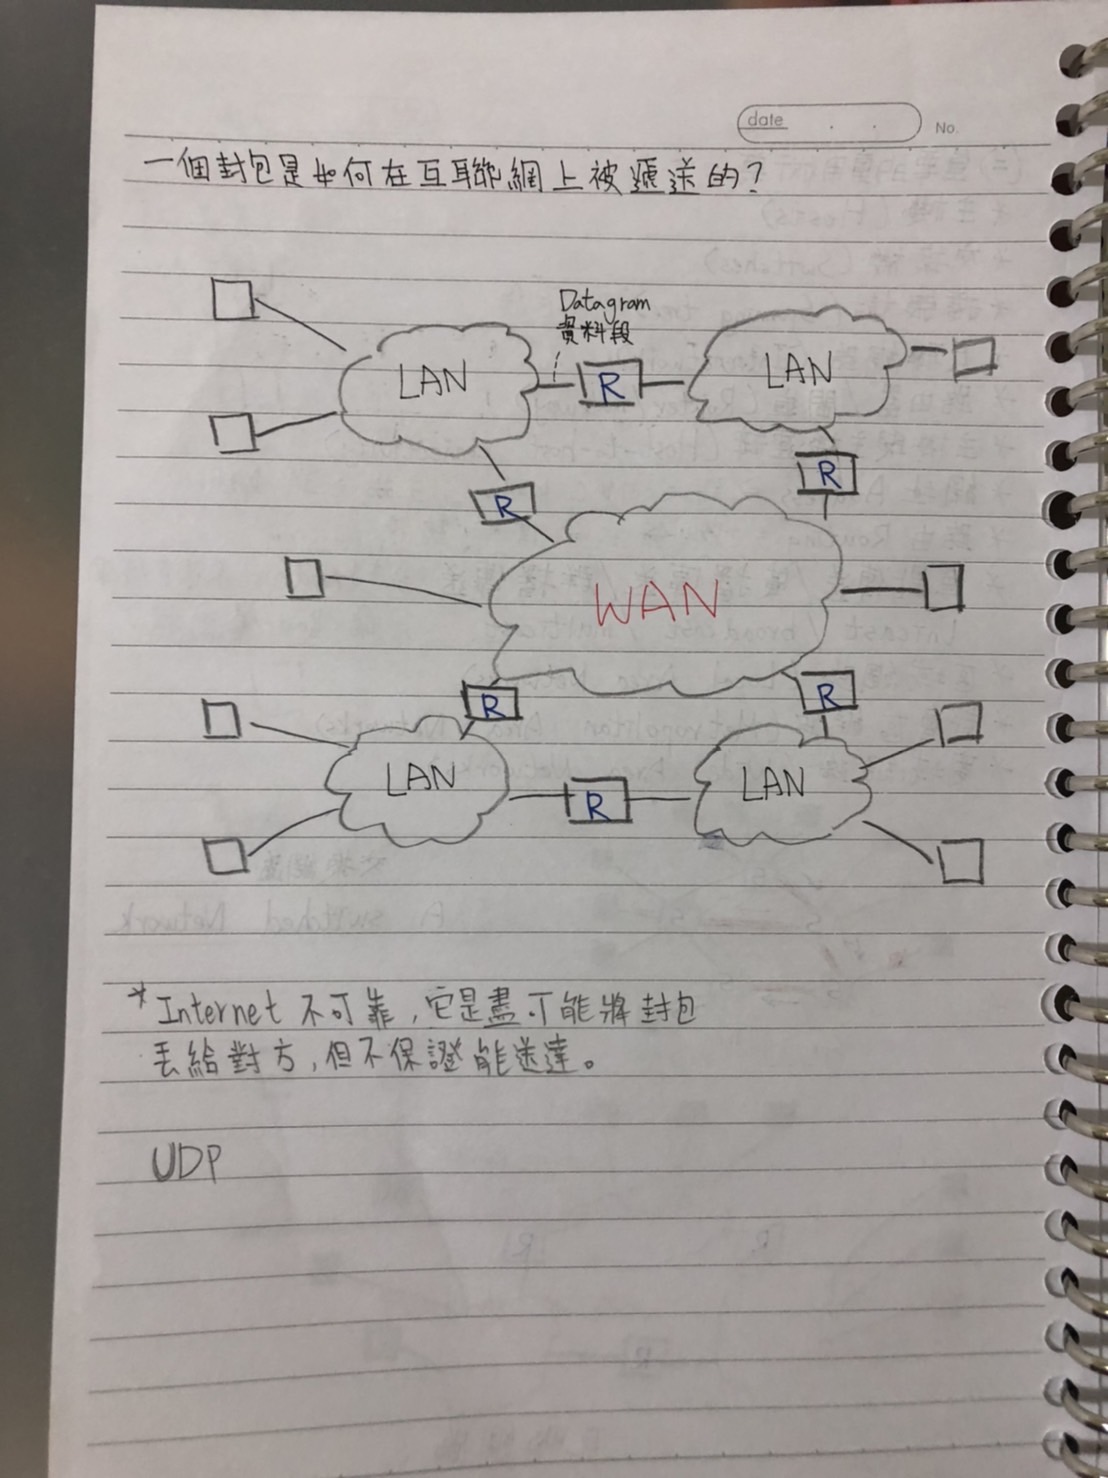 date
No.
一個封包是如何在互聯網上被遞送的？
Datagram
資料段
LAN
R
LAN
R
R
WAN
R
R
LAN
R
LAN
*Internet 不可靠，它是盡可能將封包
丟給對方，但不保證能送達。
UDP